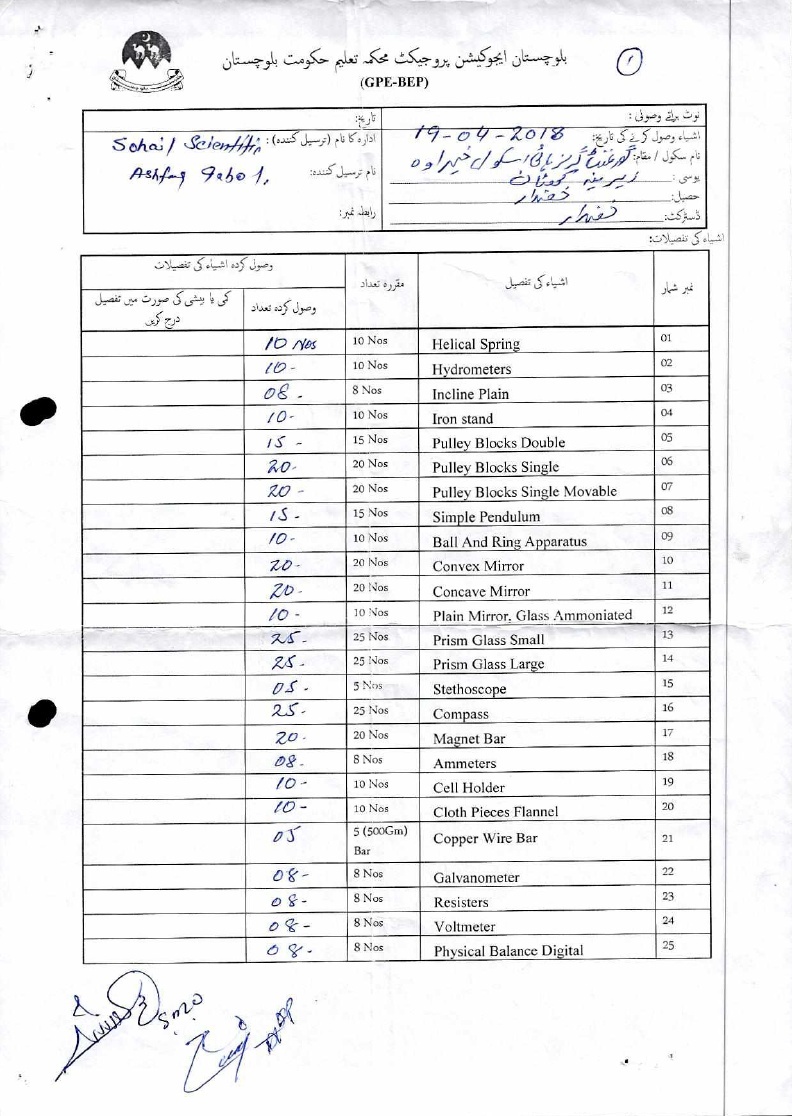 بلوچستان ایجوکیشن پروجیکٹ محکمہ تعلیم حکومت بلوچستان
(GPE-BEP)
نوٹ برائے وصولی :
اشیاء وصول کرنے کی تاریخ: 19-04-2018
نام سکول / مقام: گورنمنٹ گرلز ہائی سکول
یوسی :
تحصیل: خضدار
ڈسٹرکٹ: خضدار
تاریخ:
ادارہ کا نام (ترسیل کنندہ) : Sohail Scientific
نام ترسیل کنندہ: Ashfaq
رابطہ نمبر:
اشیاء کی تفصیلات:
نمبر شمار اشیاء کی تفصیل مقررہ تعداد وصول کردہ اشیاء کی تفصیلات
وصول کردہ تعداد کمی یا بیشی کی صورت میں تفصیل درج کریں
10 Nos 10 Nos Helical Spring 01
10 - 10 Nos Hydrometers 02
08 - 8 Nos Incline Plain 03
10 - 10 Nos Iron stand 04
15 - 15 Nos Pulley Blocks Double 05
20 - 20 Nos Pulley Blocks Single 06
20 - 20 Nos Pulley Blocks Single Movable 07
15 - 15 Nos Simple Pendulum 08
10 - 10 Nos Ball And Ring Apparatus 09
20 - 20 Nos Convex Mirror 10
20 - 20 Nos Concave Mirror 11
10 - 10 Nos Plain Mirror, Glass Ammoniated 12
25 - 25 Nos Prism Glass Small 13
25 - 25 Nos Prism Glass Large 14
05 - 5 Nos Stethoscope 15
25 - 25 Nos Compass 16
20 - 20 Nos Magnet Bar 17
08 - 8 Nos Ammeters 18
10 - 10 Nos Cell Holder 19
10 - 10 Nos Cloth Pieces Flannel 20
05 5 (500Gm) Bar Copper Wire Bar 21
08 - 8 Nos Galvanometer 22
08 - 8 Nos Resisters 23
08 - 8 Nos Voltmeter 24
08 - 8 Nos Physical Balance Digital 25